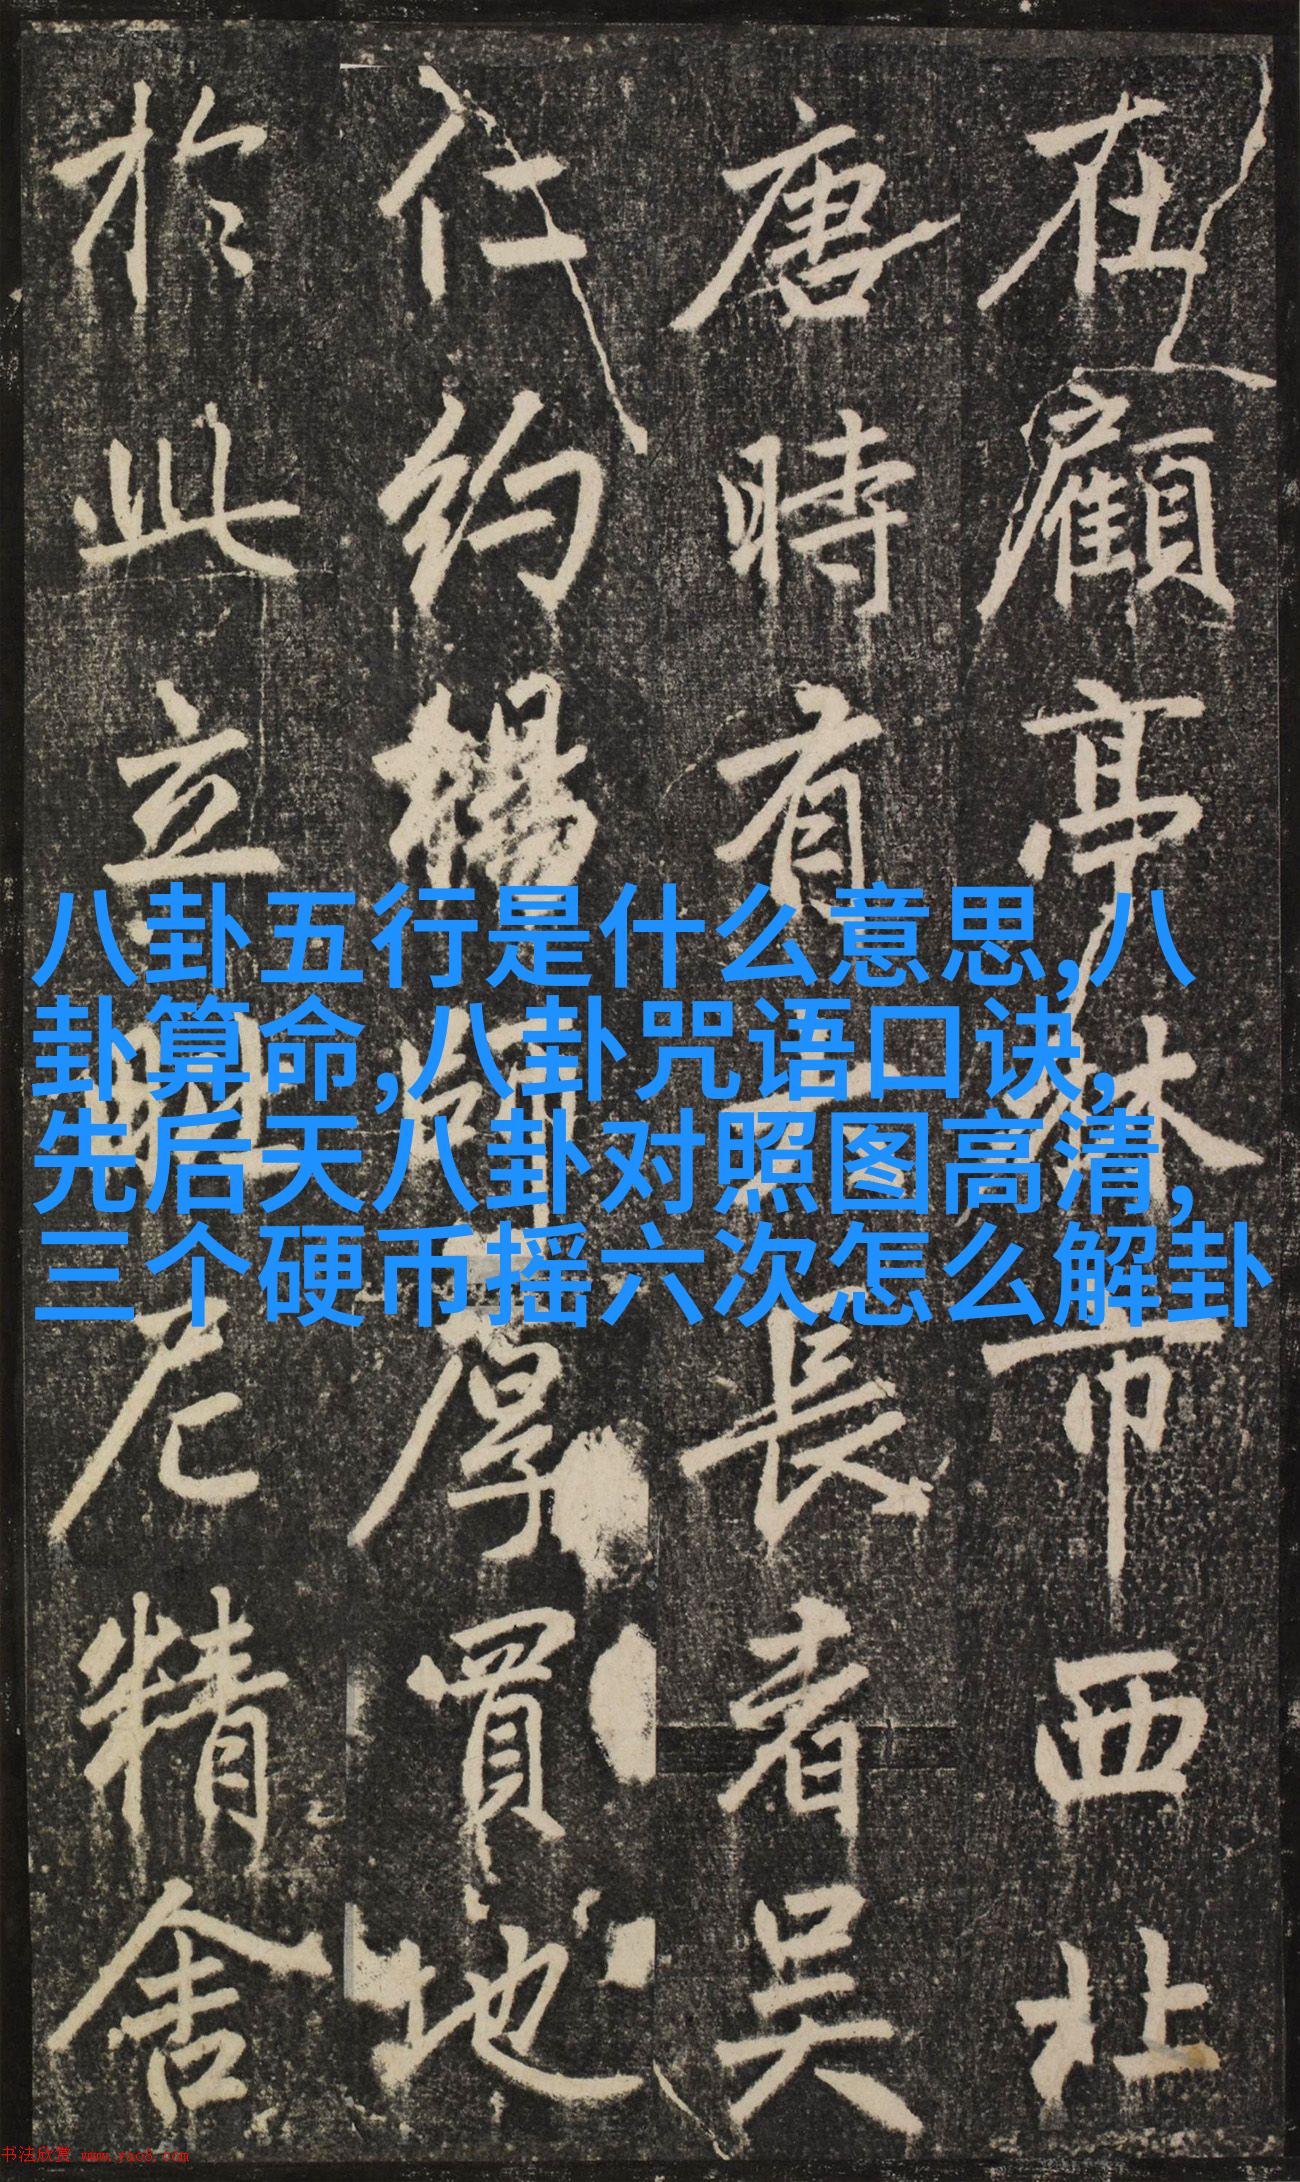 在顧亭林市西北
唐時有長者吳
仁約楊厚買地
於此立尼精舍
八卦五行是什么意思,八
卦算命,八卦咒语口诀,
先后天八卦对照图高清,
三个硬币摇六次怎么解卦
书法欣赏 www.yac8.com